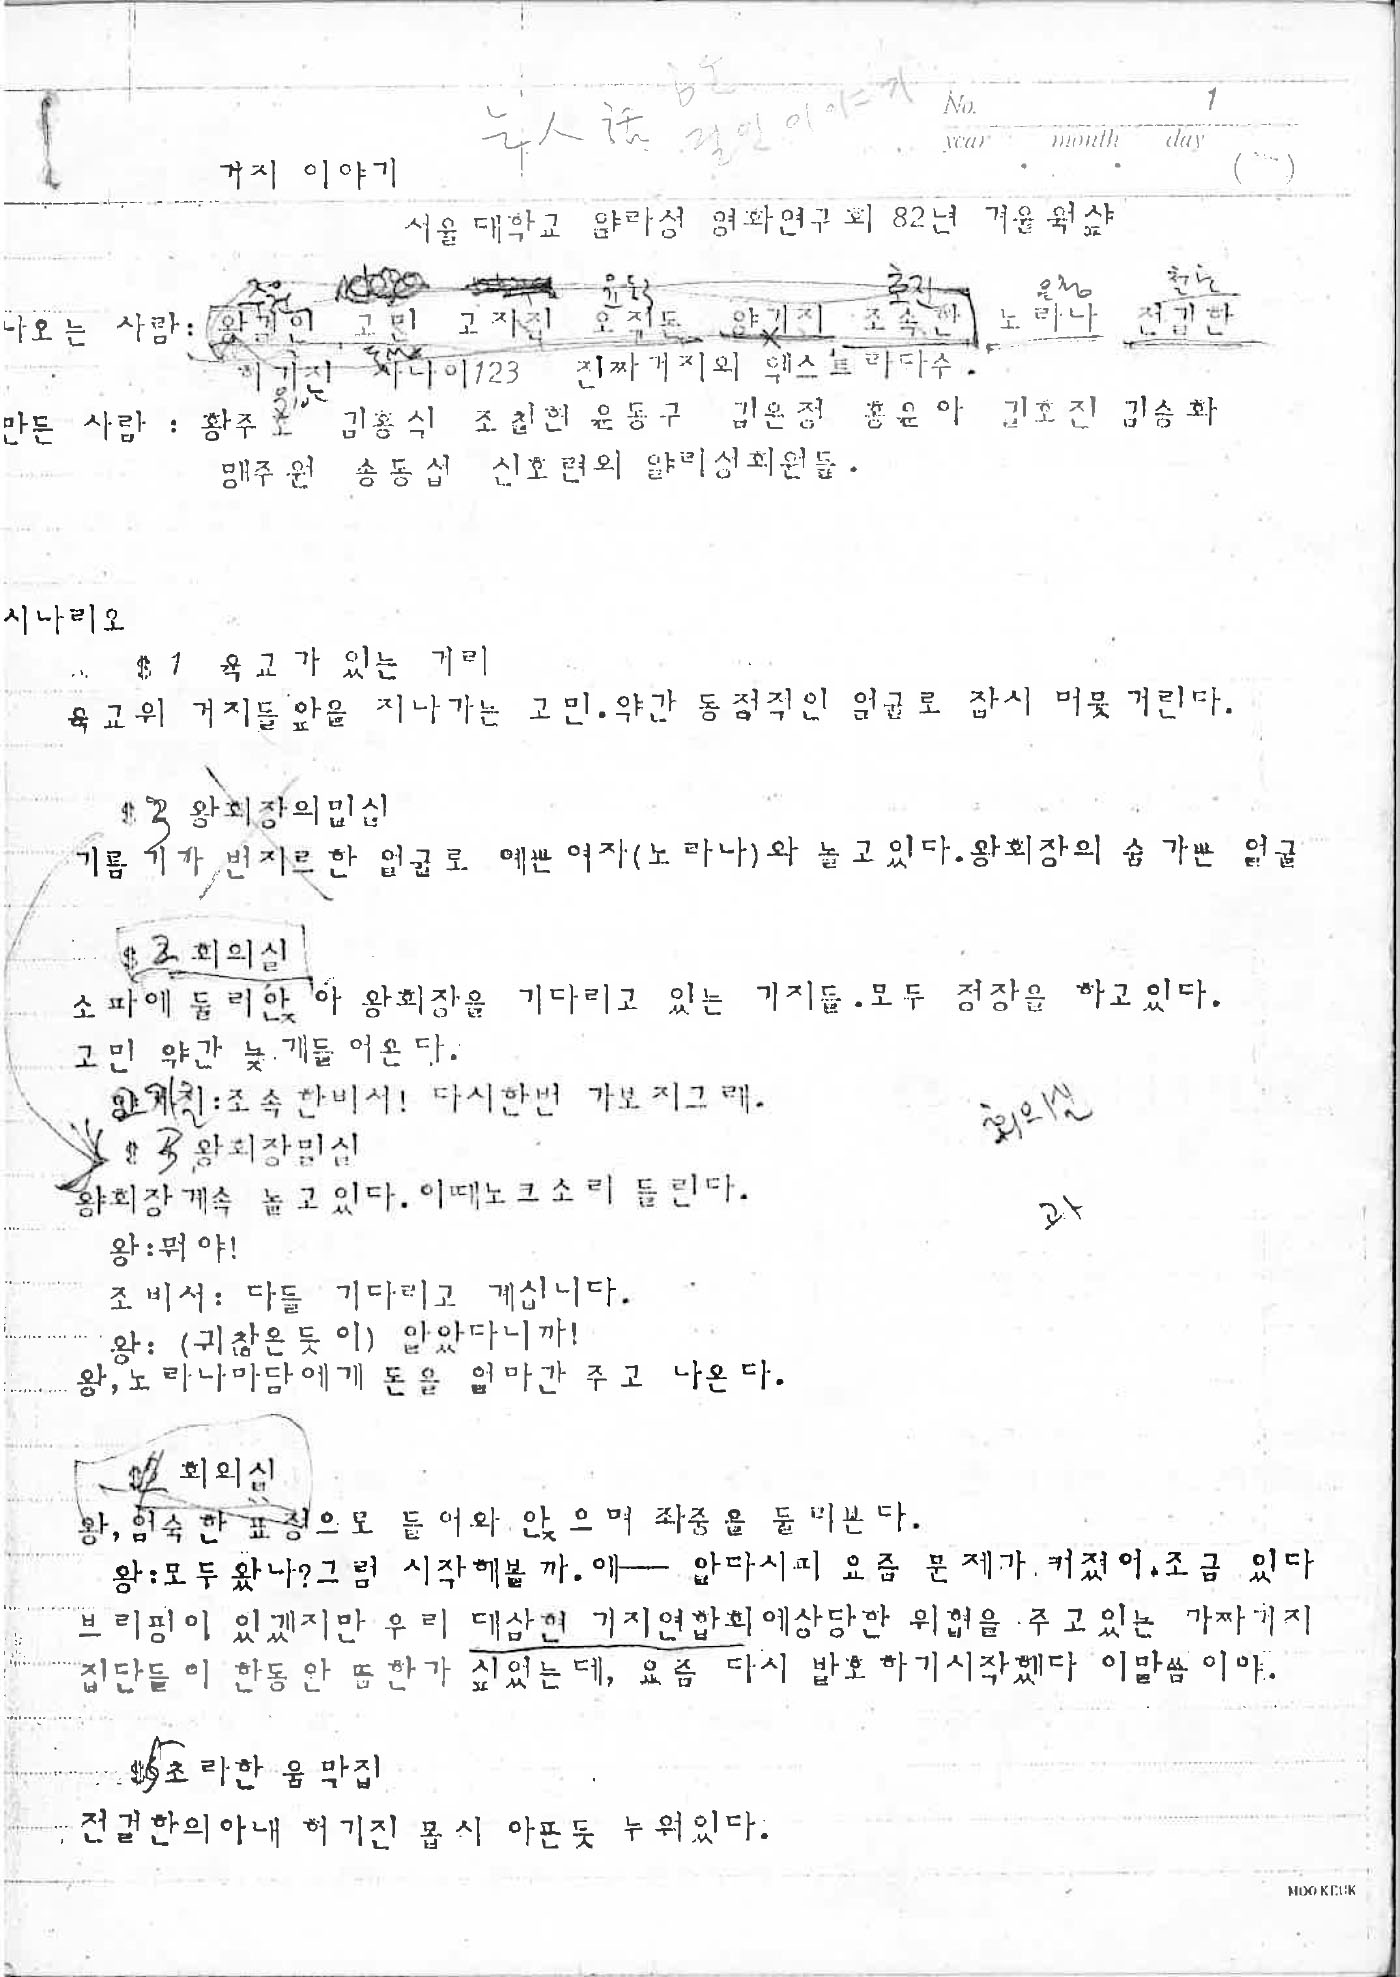 No. 1
year month day
거지 이야기
서울대학교 얄라성 영화연구회 82년 겨울 웍샾
주원 윤동 호진 은정
나오는 사람: 왕걸인 고민 고자집 오적돈 양기지 조속한 노라나 전걸한
허기진 사나이123 진짜거지외 엑스트라다수.
만든 사람 : 황주호 김홍식 조철현 윤동구 김은정 홍윤아 김호진 김승화
맹주원 송동섭 신호련외 얄라성회원들.
시나리오
$ 1 육교가 있는 거리
육교위 거지들앞을 지나가는 고민.약간 동정적인 얼굴로 잠시 머뭇거린다.
$ 3 왕회장의밀실
기름기가 번지르한 얼굴로 예쁜여자(노라나)와 놀고있다.왕회장의 숨가쁜 얼굴
$ 2 회의실
소파에 둘러앉아 왕회장을 기다리고 있는 거지들.모두 정장을 하고있다.
고민 약간 늦게들어온다.
:조속한비서! 다시한번 가보지그래.
$ 3 왕회장밀실
왕회장계속 놀고있다.이때노크소리 들린다.
왕:뭐야!
조비서: 다들 기다리고 계십니다.
왕: (귀찮은듯이) 알았다니까!
왕,노라나마담에게 돈을 얼마간 주고 나온다.
회의실
과
회의실
왕,엄숙한 표정으로 들어와 앉으며 좌중을 둘러본다.
왕:모두왔나?그럼 시작해볼까.에── 알다시피 요즘 문제가 커졌어.조금 있다
브리핑이 있겠지만 우리 대삼현 거지연합회에상당한 위협을 주고있는 가짜거지
집단들이 한동안 뜸한가 싶었는데, 요즘 다시 발호하기시작했다 이말씀이야.
초라한 움막집
전걸한의아내 허기진 몹시 아픈듯 누워있다.
MOO KEUK